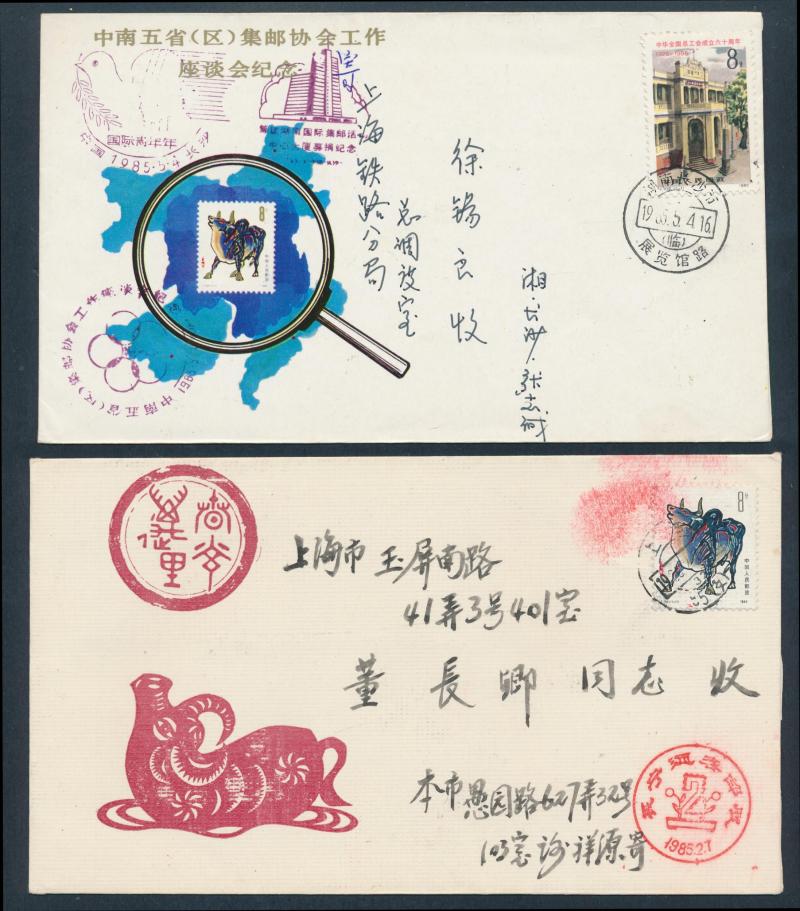 中南五省(区)集邮协会工作
座谈会纪念
国际青年年
1985·5·4
8分
上海铁路分局
总调度室
徐锡良 收
湘·长沙·张志诚
中华全国总工会成立六十周年
8分
湖南长沙市
5.4.16
(临)
展览馆路
中南五省(区)集邮协会工作座谈
1985
8分
中国人民邮政
上海市玉屏南路
41弄3号401室
董長卿同志收
本市愚园路627弄32号
谢祥源寄
1985.2.7